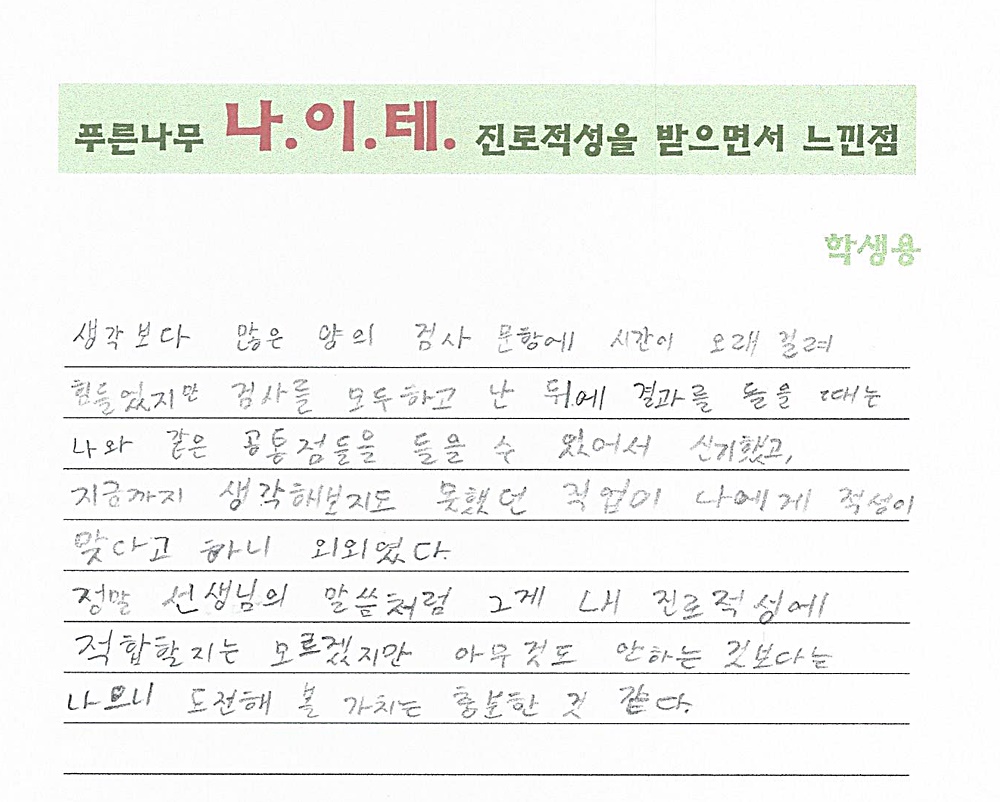 푸른나무 나.이.테. 진로적성을 받으면서 느낀점
학생용
생각보다 많은 양의 검사 문항에 시간이 오래 걸려
힘들었지만 검사를 모두하고 난 뒤에 결과를 들을 때는
나와 같은 공통점들을 들을 수 있어서 신기했고,
지금까지 생각해보지도 못했던 직업이 나에게 적성이
맞다고 하니 외외였다.
정말 선생님의 말씀처럼 그게 내 진로적성에
적합할지는 모르겠지만 아무것도 안하는 것보다는
나으니 도전해 볼 가치는 충분한 것 같다.